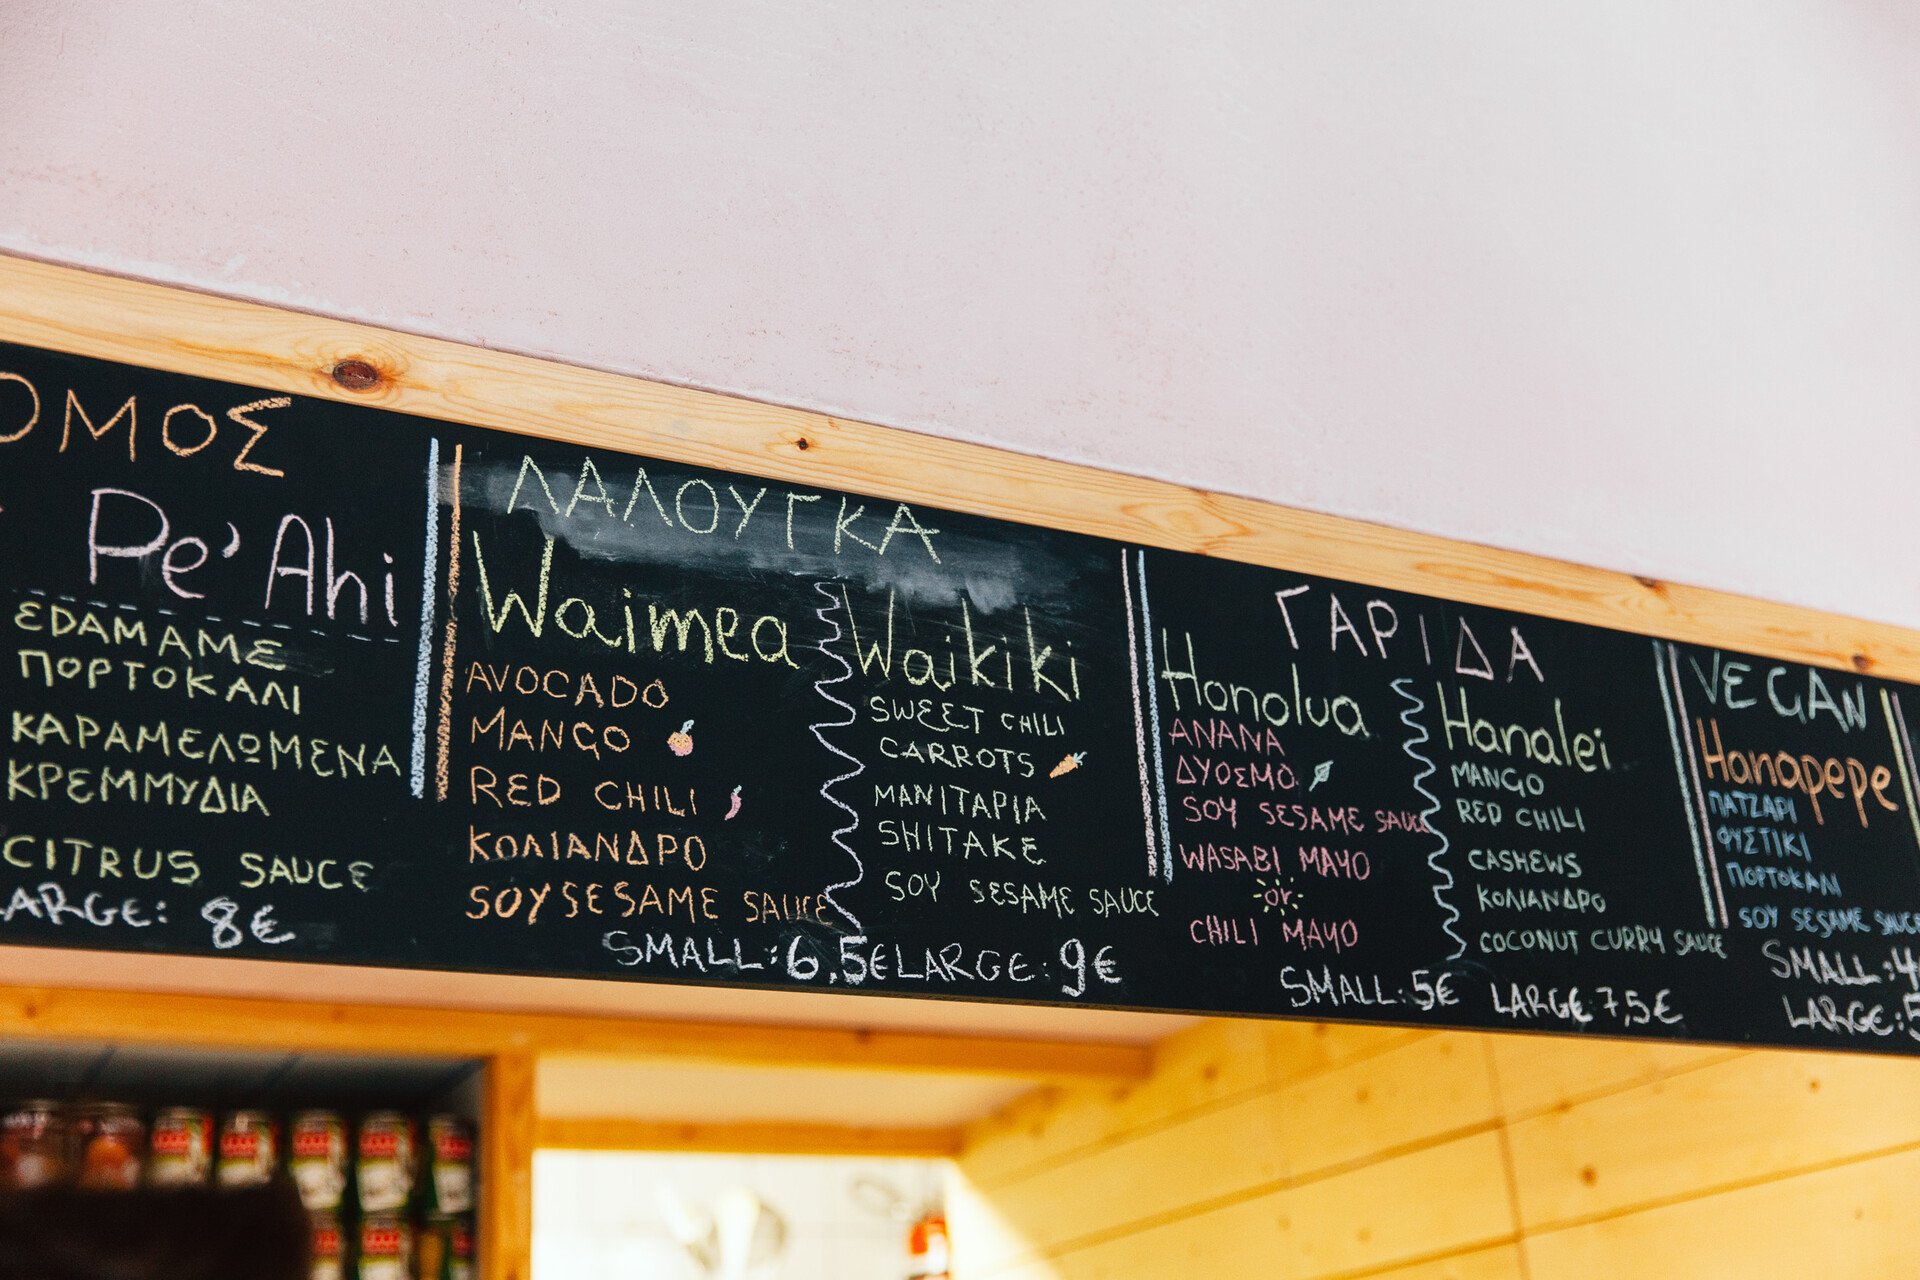 ΟΜΟΣ
Pe'Ahi
EDAMAME
ΠΟΡΤΟΚΑΛΙ
ΚΑΡΑΜΕΛΩΜΕΝΑ
ΚΡΕΜΜΥΔΙΑ
CITRUS SAUCE
LARGE: 8€
ΛΑΛΟΥΓΚΑ
Waimea
AVOCADO
MANGO
RED CHILI
ΚΟΛΙΑΝΔΡΟ
SOY SESAME SAUCE
Waikiki
SWEET CHILI
CARROTS
ΜΑΝΙΤΑΡΙΑ
SHITAKE
SOY SESAME SAUCE
SMALL: 6,5€ LARGE: 9€
ΓΑΡΙΔΑ
Honolua
ΑΝΑΝΑ
ΔΥΟΣΜΟ
SOY SESAME SAUCE
WASABI MAYO
or
CHILI MAYO
Hanalei
MANGO
RED CHILI
CASHEWS
ΚΟΛΙΑΝΔΡΟ
COCONUT CURRY SAUCE
SMALL: 5€ LARGE: 7,5€
VEGAN
Hanapepe
ΠΑΤΖΑΡΙ
ΦΥΣΤΙΚΙ
ΠΟΡΤΟΚΑΛΙ
SOY SESAME SAUCE
SMALL: 4
LARGE: 5